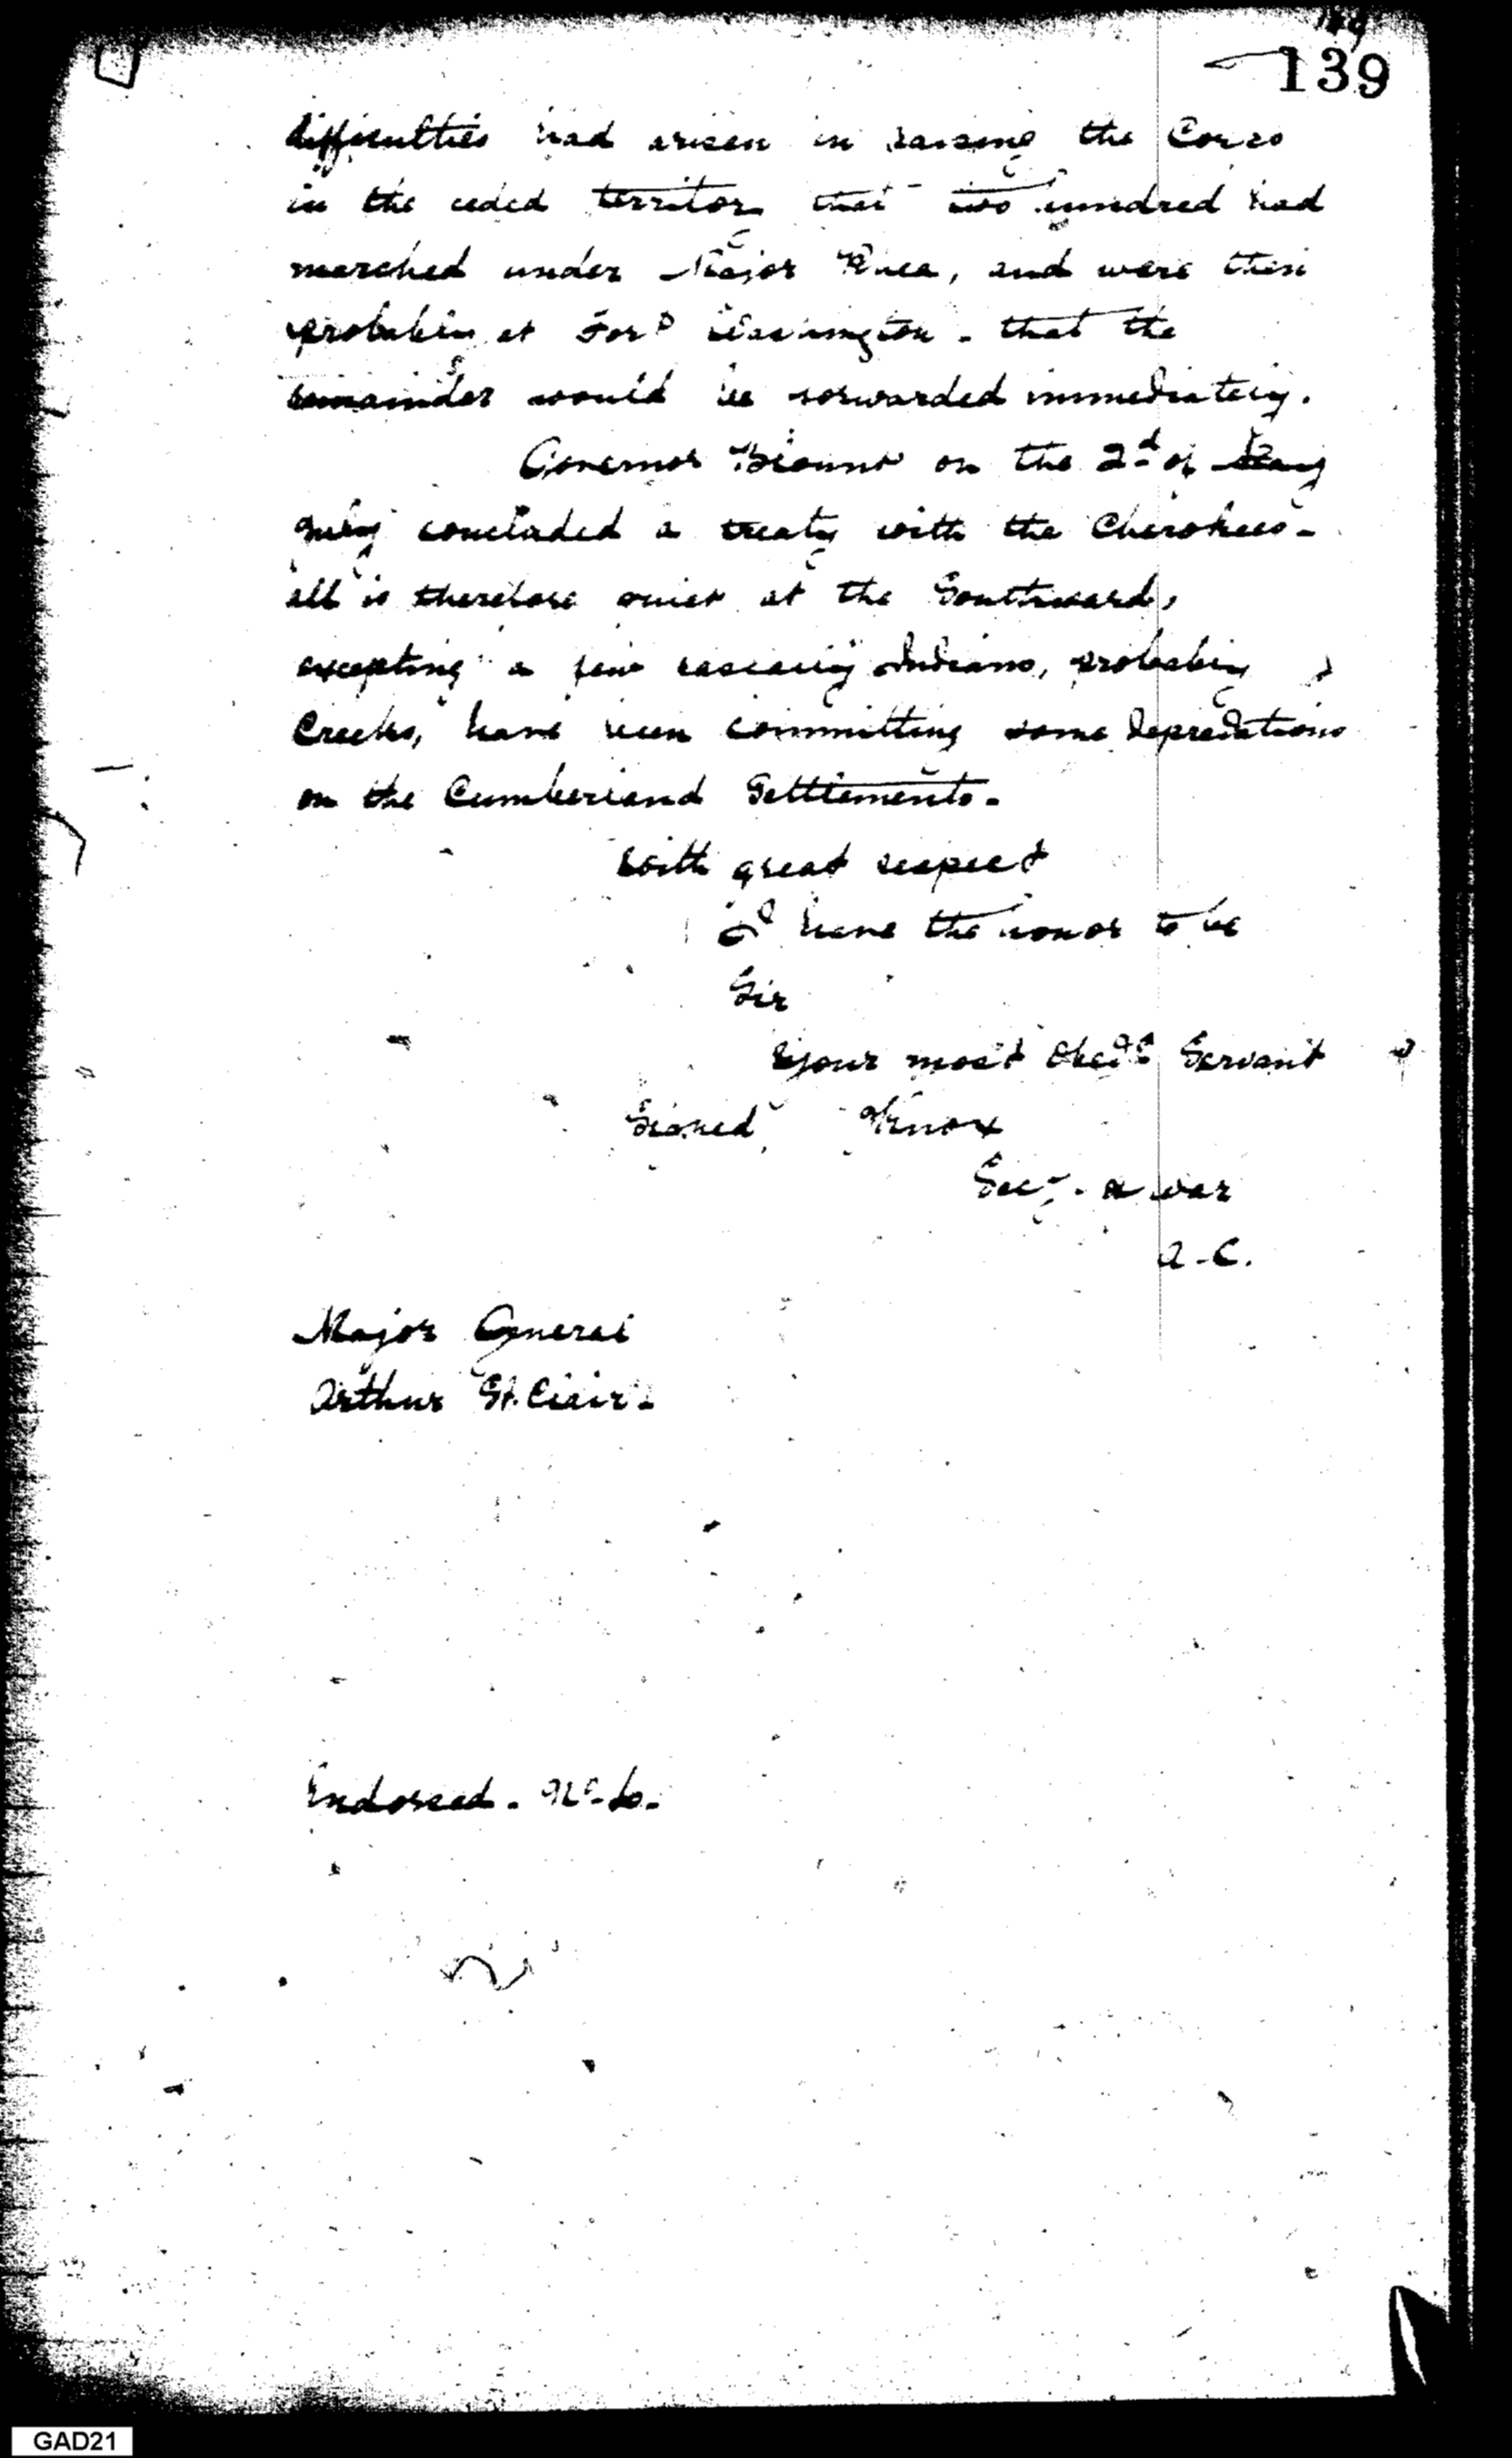 139
difficulties had arisen in raising the Corps
in the ceded territory that two hundred had
marched under Major Rhea, and were then
probably at Fort Washington - that the
remainder would be forwarded immediately.
Governor Blount on the 2d of May
July concluded a treaty with the Cherokees -
all is therefore quiet at the Southward,
excepting a few rascally Indians, probably
Creeks, have been committing some depredations
on the Cumberland Settlements -
With great respect
I have the honor to be
Sir
Your most Obedt Servant
Signed HKnox
Secy. of war
A.C.
Major General
Arthur St. Clair -
Endorsed - No. 6 -
GAD21